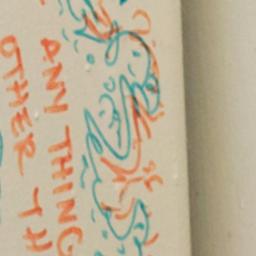 ANY THING
OTHER TH